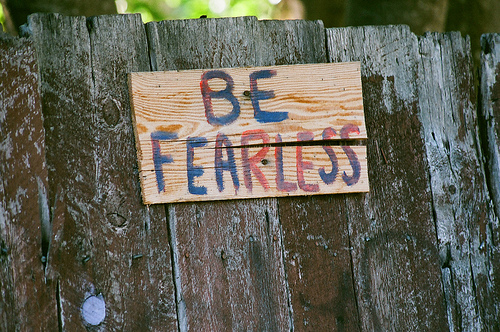 BE
FEARLESS